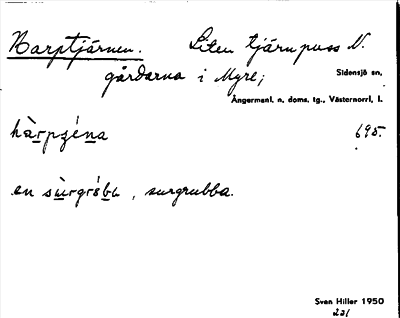 Harptjärnen. Liten tjärnpuss N.
gårdarna i Myre;
Sidensjö sn,
Ångermanl. n. doms. tg., Västernorrl. l.
hàrpʒéna 695.
en sùrgróbu, surgrubba.
Sven Hiller 1950
231